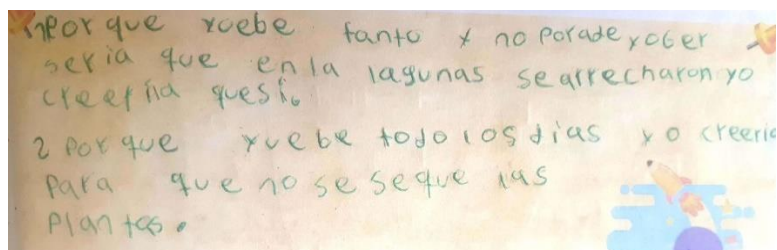 1 Por que yuebe tanto y no porade yober
seria que en la lagunas se arrecharon yo
creeria que si.
2 Por que yuebe todo los dias yo creeria
Para que no se seque las
Plantas.